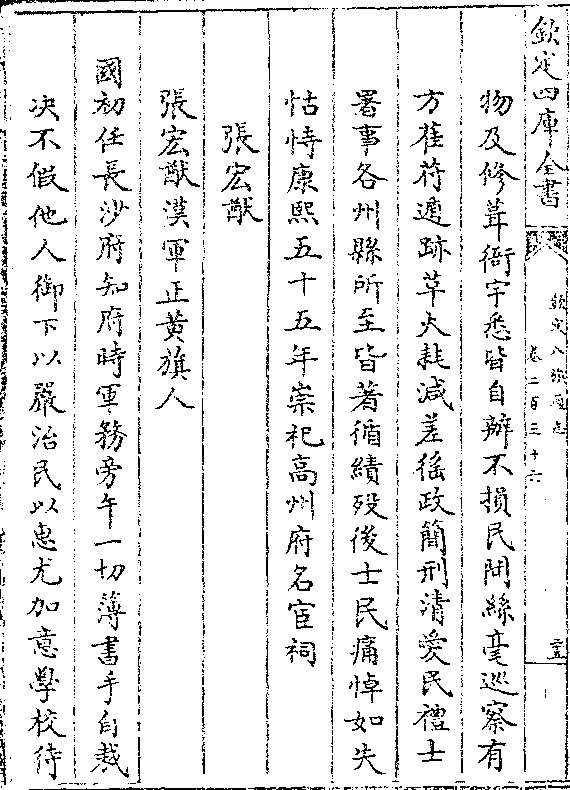 欽定四庫全書
欽定八旗通志
卷二百三十六
物及修葺衙宇悉皆自辦不損民間絲毫巡察有
方萑苻遁跡草火耗減差徭政簡刑清愛民禮士
署事各州縣所至皆著循績殁後士民痛悼如失
怙恃康熙五十五年崇祀高州府名宦祠
張宏猷
張宏猷漢軍正黄旗人
國初任長沙府知府時軍務旁午一切簿書手自裁
决不假他人御下以嚴治民以惠尤加意學校待